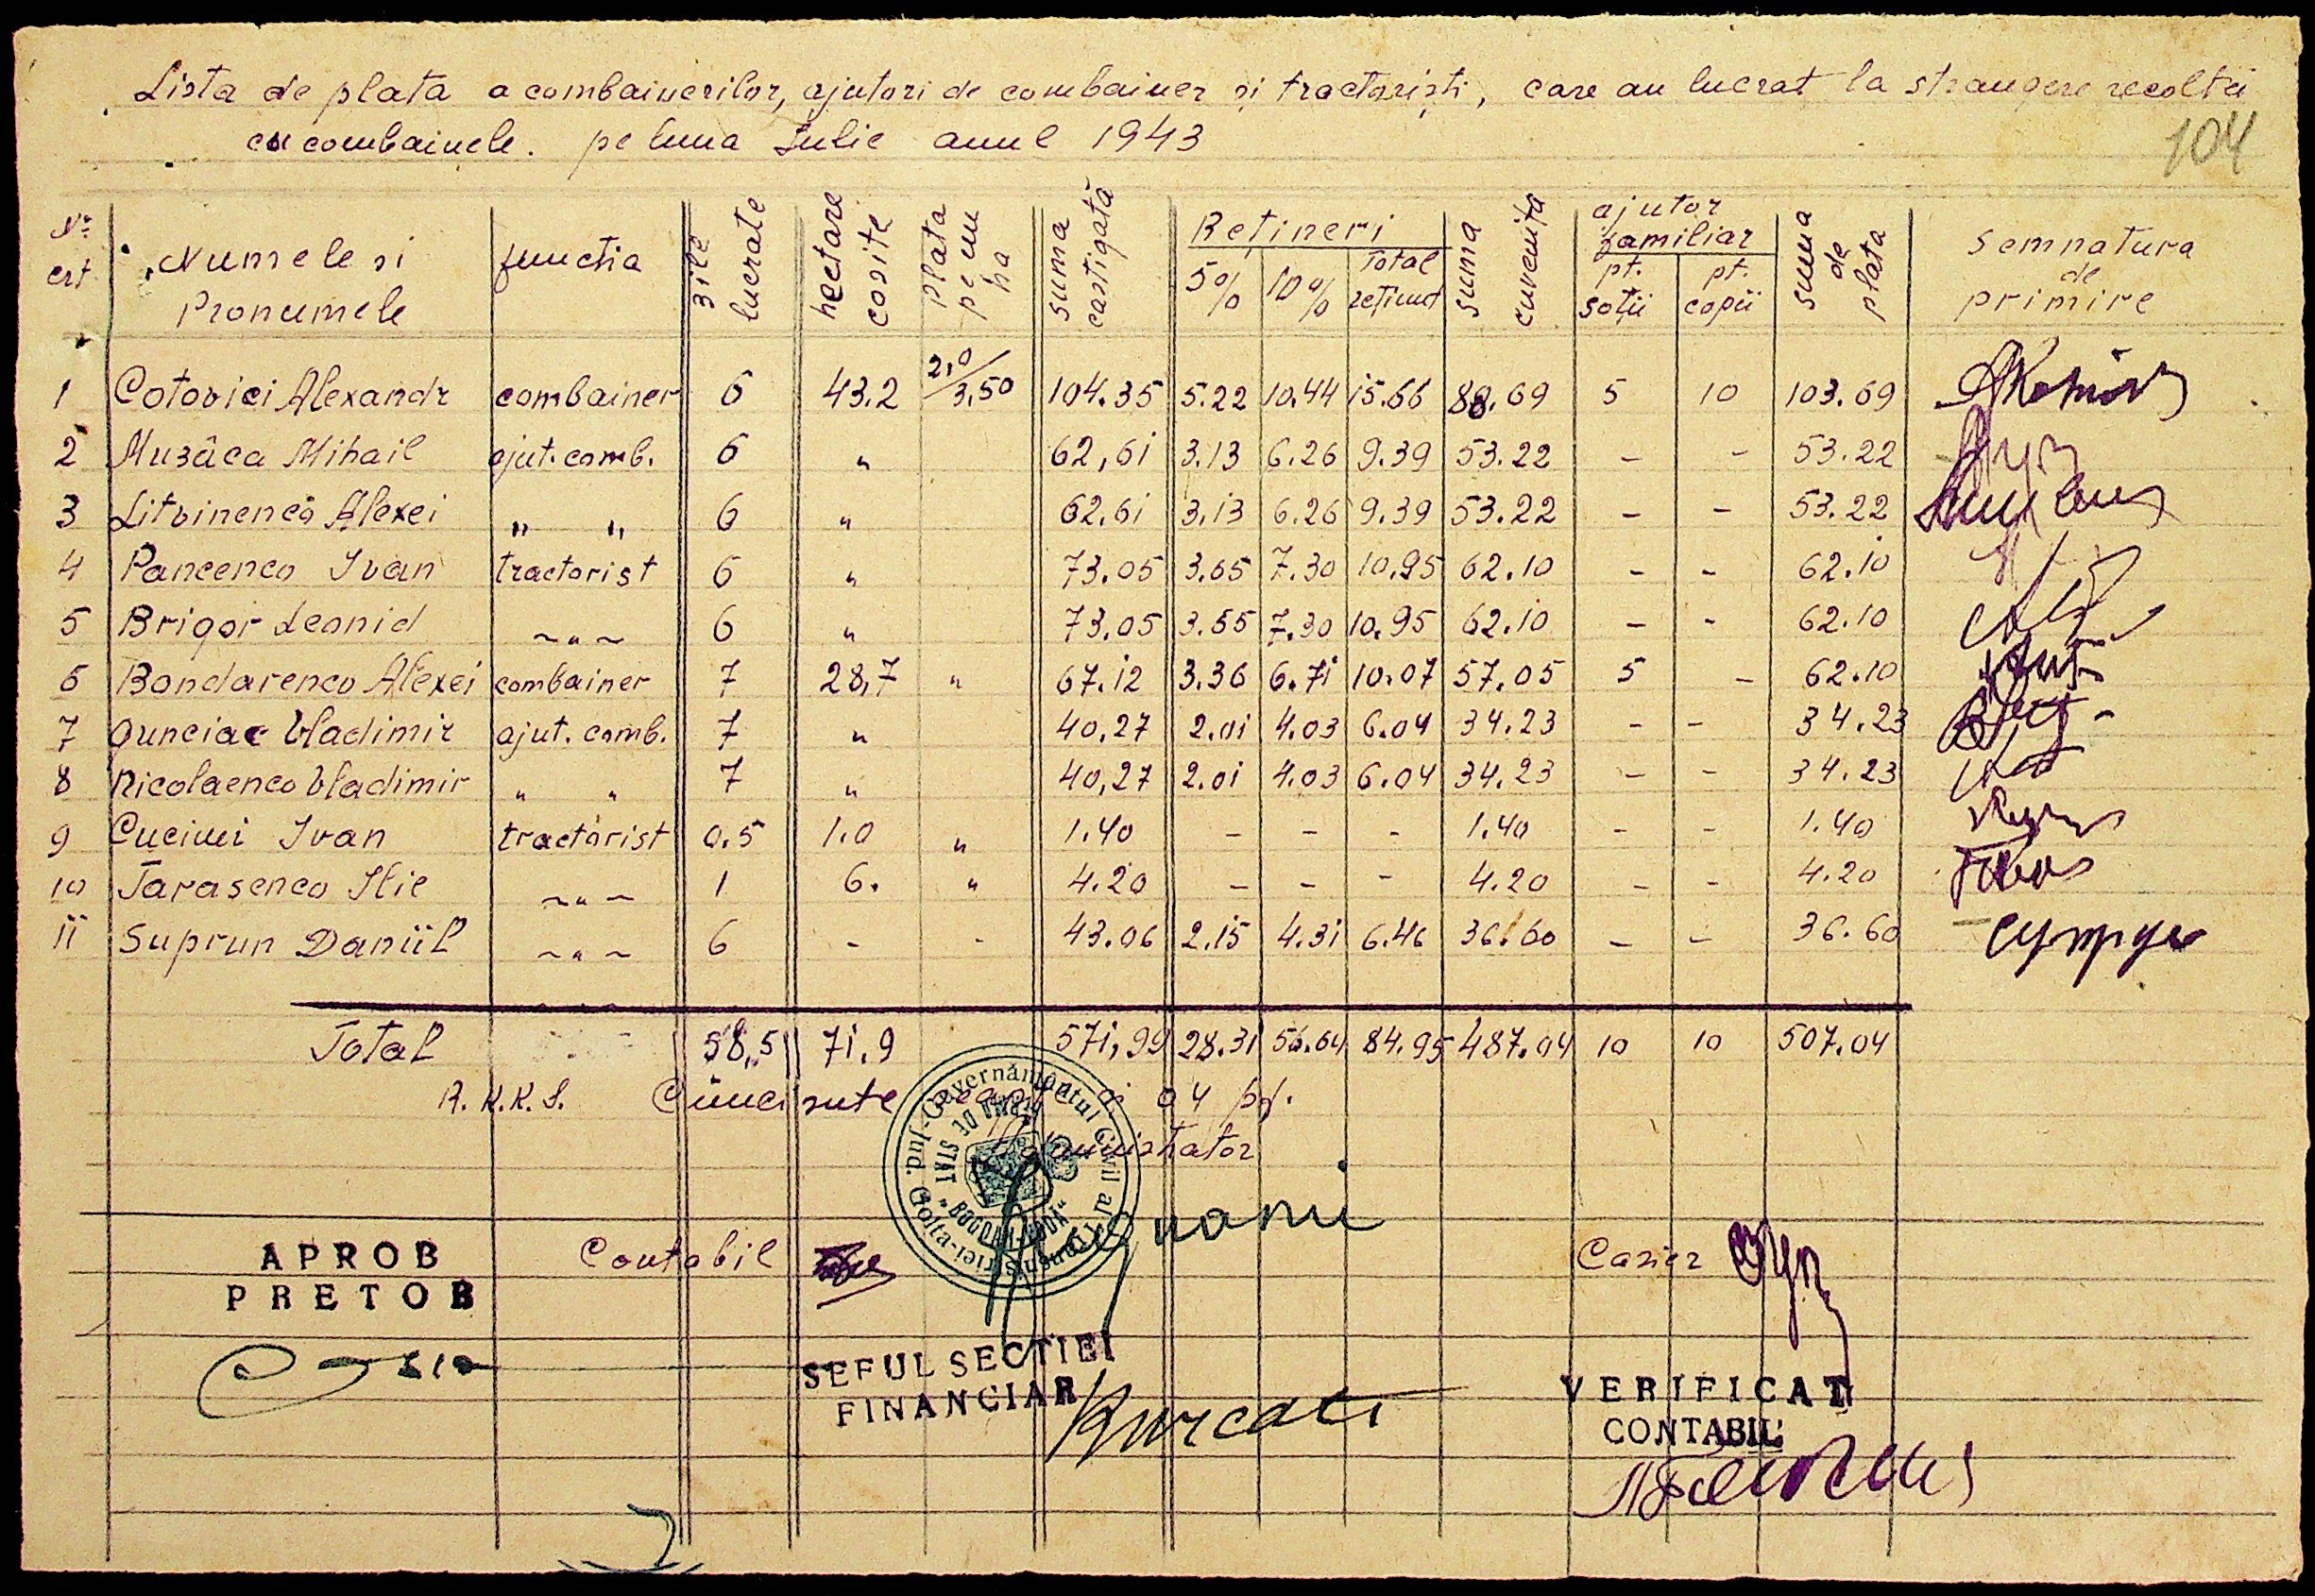 Lista de plata a combainerilor, ajutori de combainer și tractoriști, care au lucrat la strangere recoltei
cu combainele. pe luna Iulie anul 1943
104
№ crt | Numele si Pronumele | functia | zile lucrate | hectare cosite | plata pe un ha | suma castigată | Rețineri 5% | 10% | Total reținut | suma cuvenita | ajutor familiar pt. soții | pt. copii | suma de plata | semnatura de primire
1 Cotovici Alexandr combainer 6 43.2 2,0/3,50 104.35 5.22 10.44 15.66 88.69 5 10 103.69
2 Muzâca Mihail ajut. comb. 6 " 62,61 3.13 6.26 9.39 53.22 – – 53.22
3 Litvinenco Alexei " " 6 " 62.61 3.13 6.26 9.39 53.22 – – 53.22
4 Pancenco Ivan tractorist 6 " 73.05 3.65 7.30 10.95 62.10 – – 62.10
5 Brigor Leonid ~"~ 6 " 73.05 3.65 7.30 10.95 62.10 – – 62.10
6 Bondarenco Alexei combainer 7 28,7 " 67.12 3.36 6.71 10.07 57.05 5 – 62.10
7 Ounciac Vladimir ajut. comb. 7 " 40,27 2.01 4.03 6.04 34.23 – – 34.23
8 Nicolaenco Vladimir " " 7 " 40,27 2.01 4.03 6.04 34.23 – – 34.23
9 Ivan tractorist 0.5 1.0 " 1.40 – – – 1.40 – – 1.40
10 Tarasenco Ilie ~"~ 1 6. " 4.20 – – – 4.20 – – 4.20
11 Suprun Daniil ~"~ 6 – – 43.06 2.15 4.31 6.46 36.60 – – 36.60
Total 58,5 71.9 571,99 28.31 56.64 84.95 487.04 10 10 507.04
R.K.K.S. Cinci sute 04 pf.
Administrator
Guvernământul Civil al Transnistriei-Jud. Golta
STAT
Contabil
Casier
APROB
PRETOR
SEFUL SECTIEI
FINANCIAR
VERIFICAT
CONTABIL